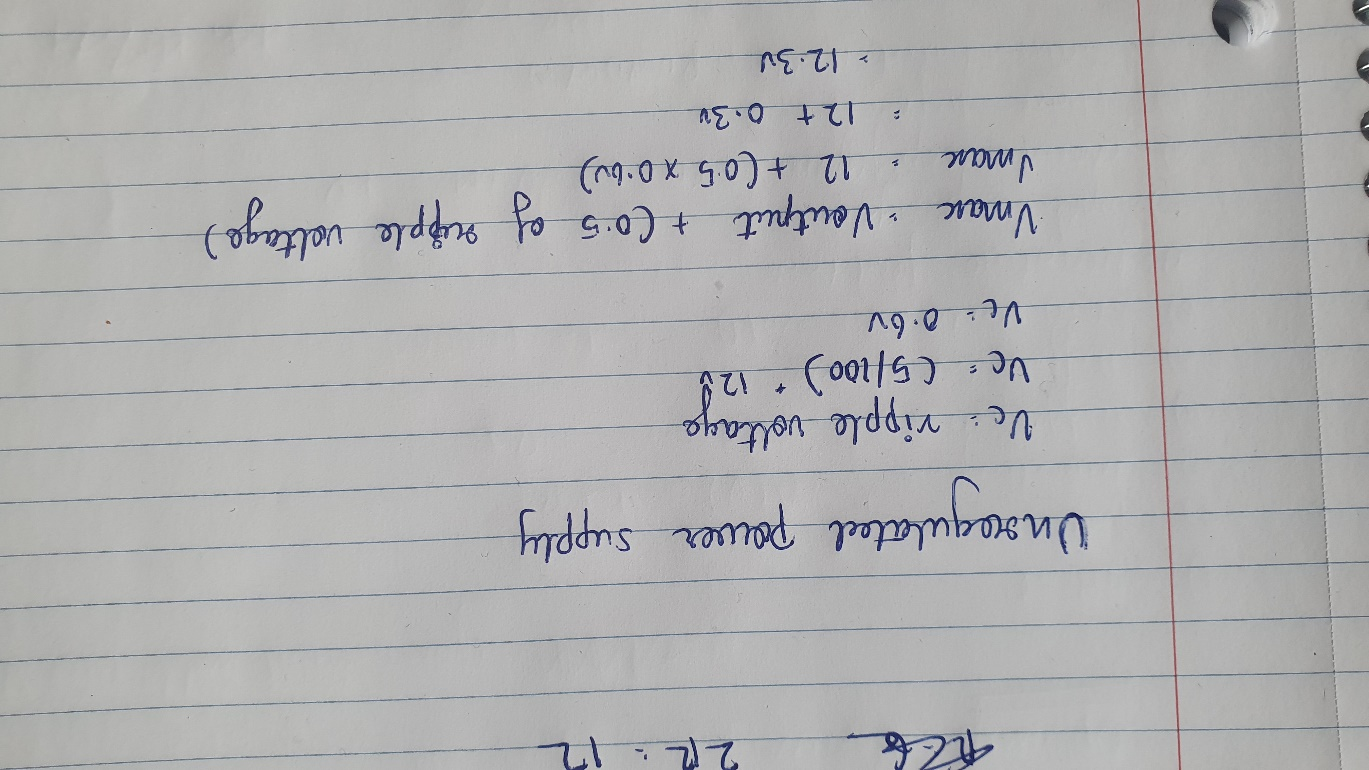 2R = 12
Unregulated power supply
Vc = ripple voltage
Vc = (5/100) * 12V
Vc = 0.6V
Vmax = Voutput + (0.5 of ripple voltage)
Vmax = 12 + (0.5 x 0.6V)
= 12 + 0.3V
= 12.3V